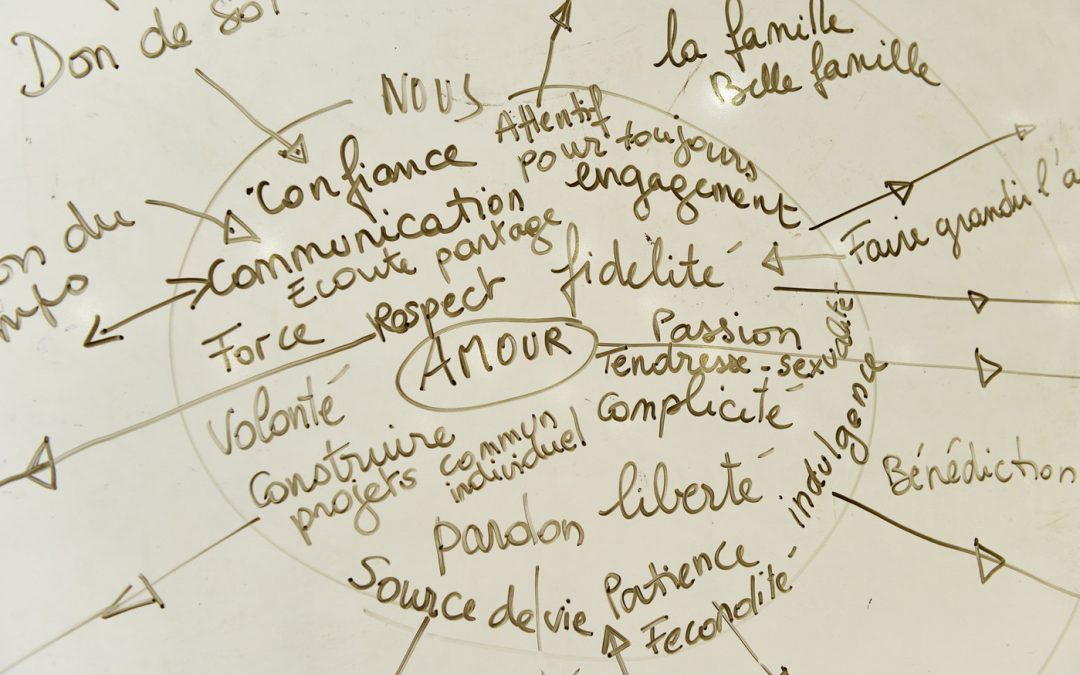 Don de soi
NOUS
la famille
Belle famille
Attentif
pour toujours
engagement
Confiance
Communication
Ecoute partage
fidélité
Faire grandir l'a
on du
Force
Respect
AMOUR
Passion
Tendresse - sexualité
Complicité
indulgence
Volonté
Construire
projets commun
individuel
liberté
Bénédiction
pardon
Source de vie
Patience
Fecondité